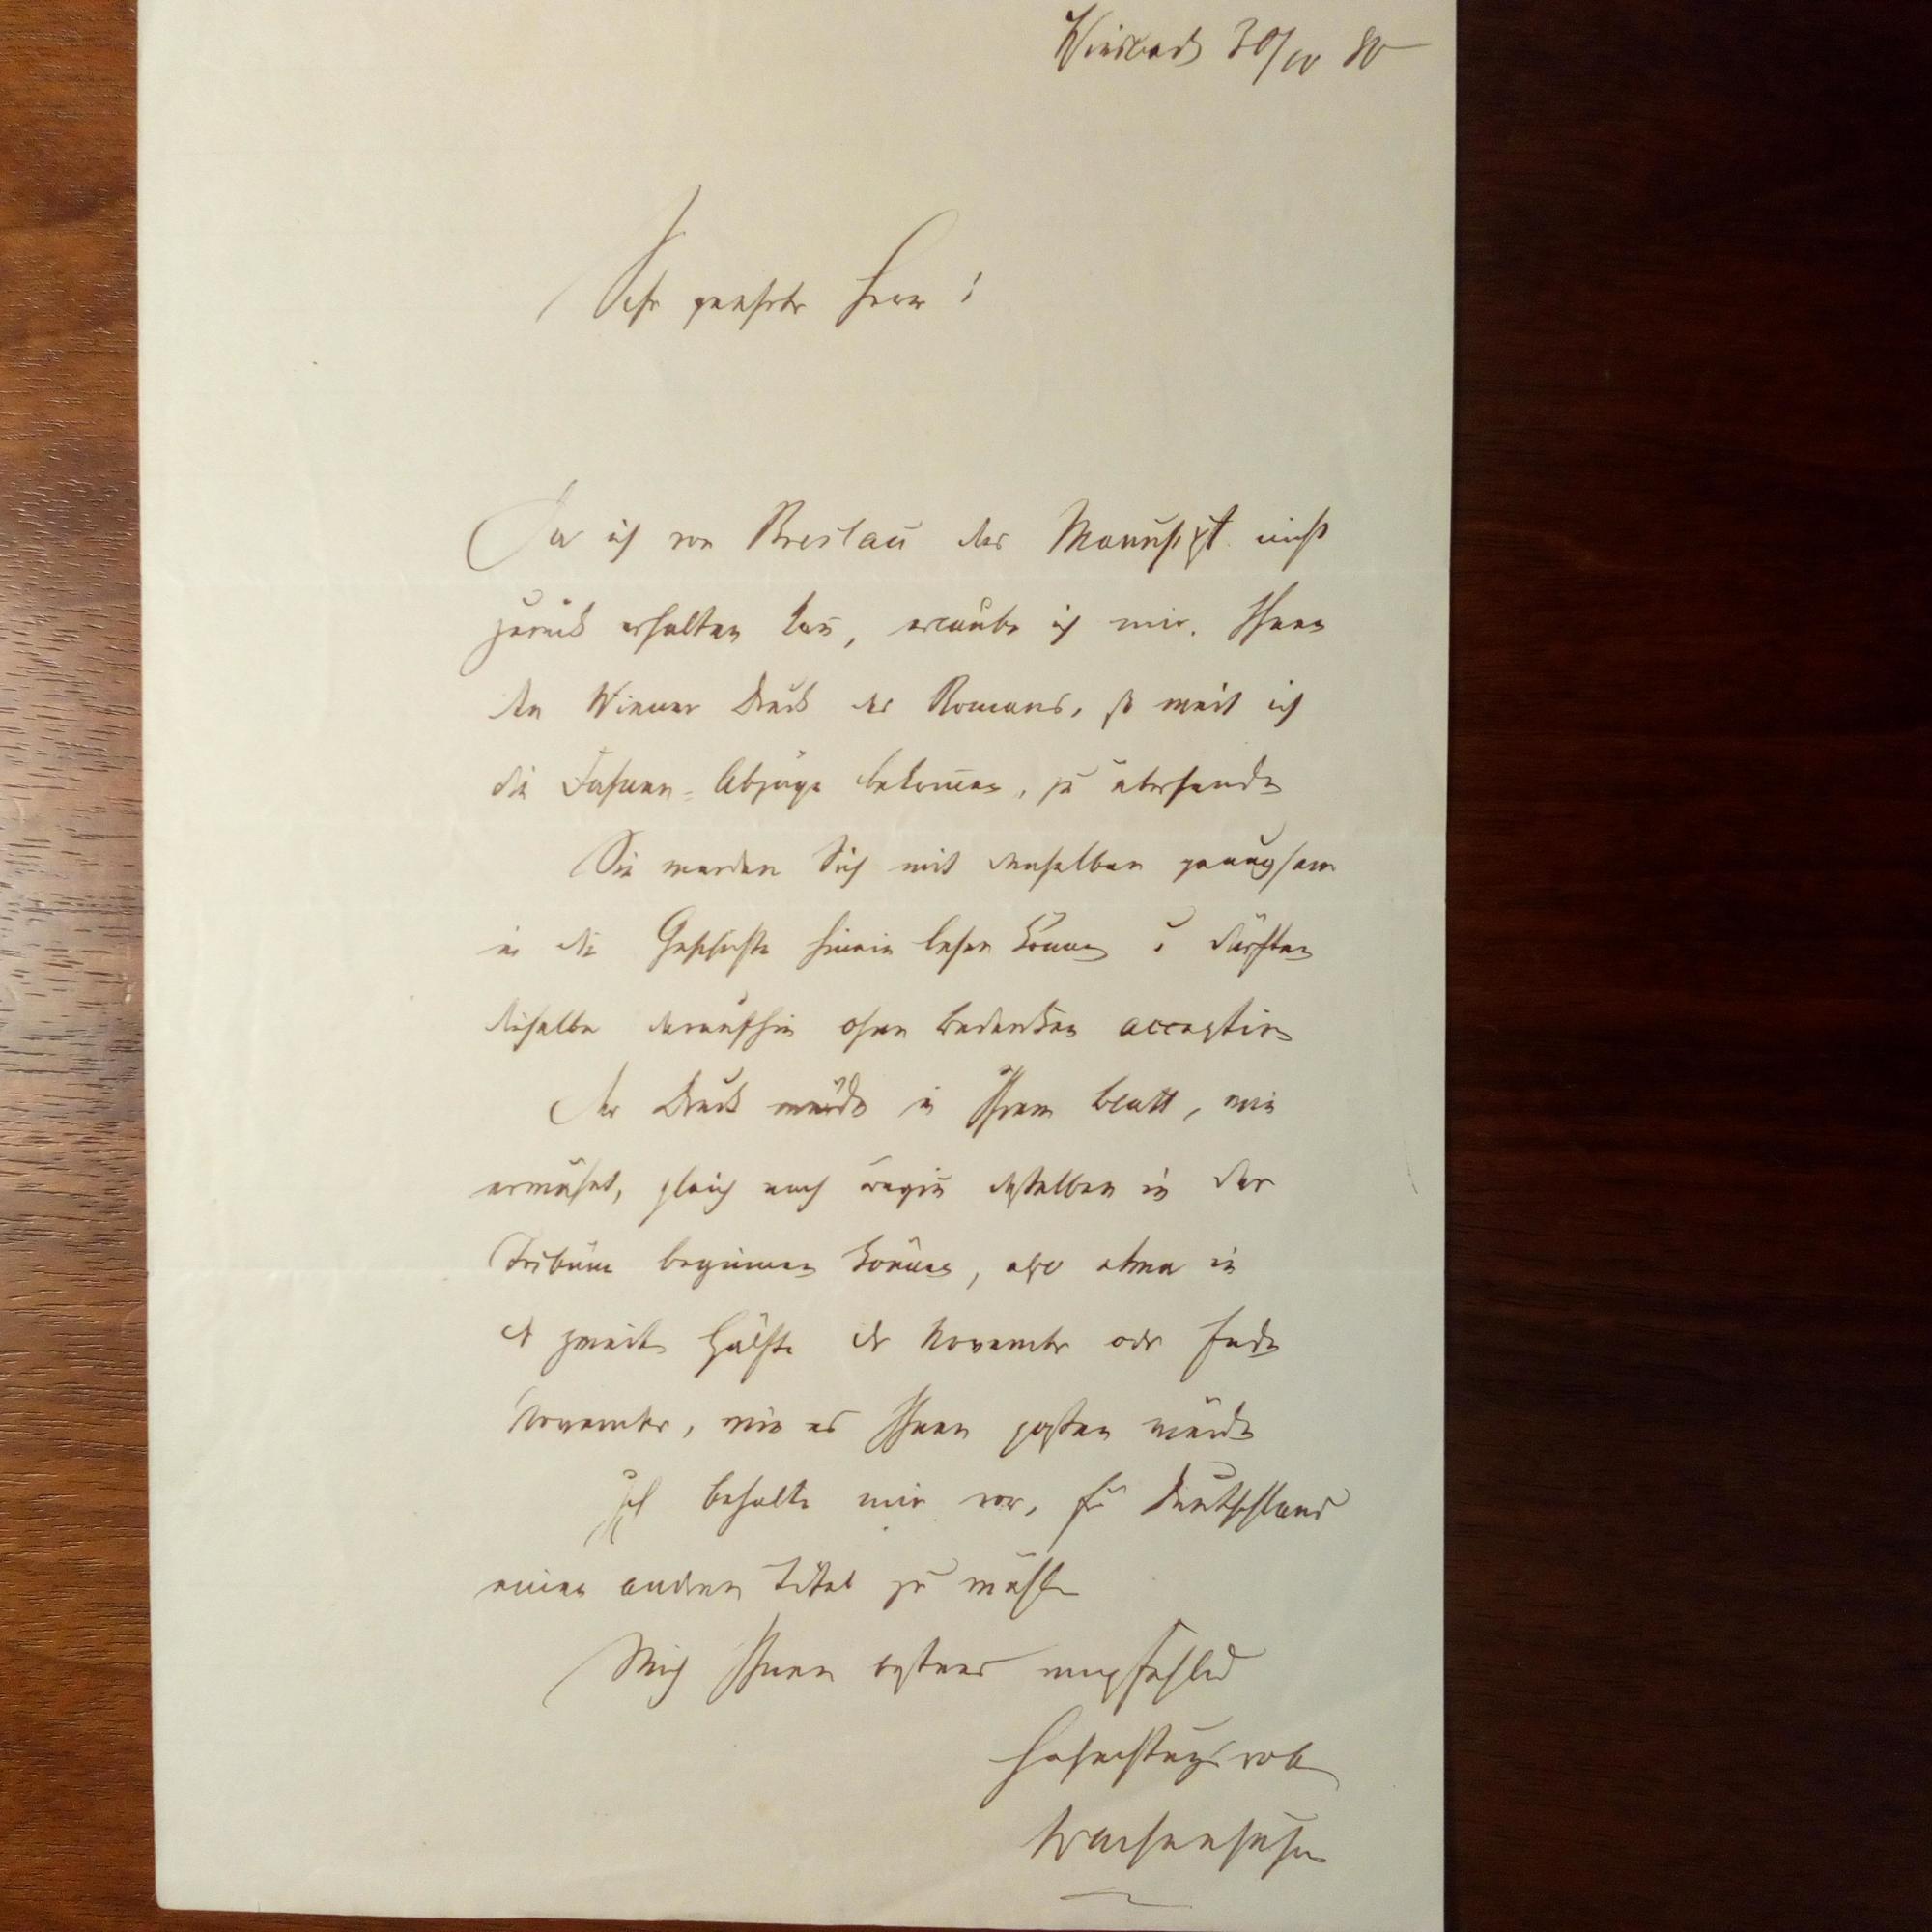 Wiesbad 30/10 80
Sehr geehrter Herr!
Da ich von Breslau das Manuscpt nicht
zurück erhalten kan, erlaube ich mir, Ihnen
den Wiener Druck des Romans, so weit ich
die Fahnen-Abzüge bekomen, zu übersenden
Sie werden Sich mit denselben genugsam
in die Geschichte hinein lesen könen u dürften
dieselbe daraufhin ohne Bedenken acceptiren
Der Druck würde in Ihrem Blatt, wie
erwähnt, gleich nach Begin desselben in der
Tribüne beginnen könen, also etwa in
der zweiten Hälfte des November oder Ende
November, wie es Ihnen passen würde
Ich behalte mir vor, für Deutschland
einen anderen Titel zu wählen
Mich Ihnen bestens empfehlend
Hochachtungsvoll
Wachenhusen